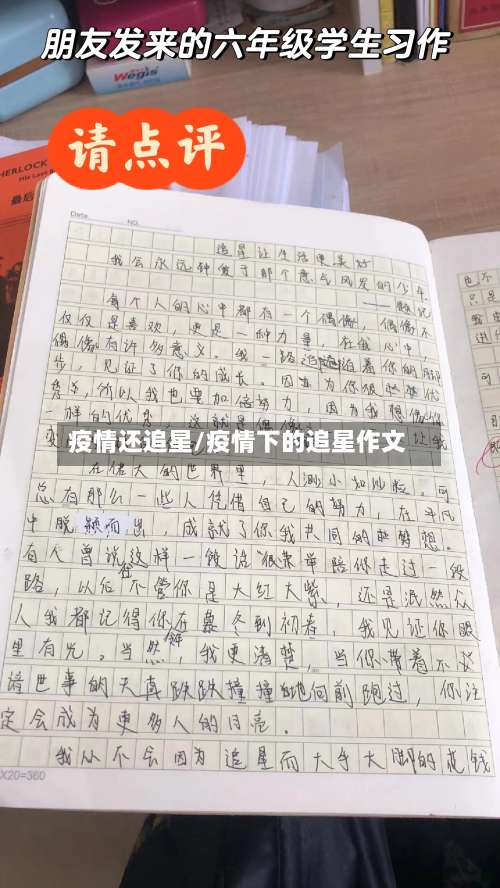 朋友发来的六年级学生习作
请点评
Wegis
SHERLOCK
最后
Date
NO.
追星让生活更美好
我会永远钟爱于那个意气风发的少年
每个人的心中都有一个偶像，偶像不
仅仅是喜欢，更是一种力量，在我心中，
偶像有许多意义。我一路追随着你的脚
步，见证了你的成长。因为你很
秀，所以我也要加倍努力，因为我想像你
一样的优秀
疫情还追星/疫情下的追星作文
在偌大的世界里，人渺小如沙粒，可
总有那么一些人凭借自己的努力，在平凡
中脱颖而出，成就了你我共同的梦想。
有人曾说这样一段话“很荣幸陪你走过一段
路，以后在不管你是大红大紫，还是泯然众
人我都记得你，在暮冬到初春，我见证你眼
里有光。当然，我更清楚，当你带着不谙
世事的天真跌跌撞撞地向前跑过，你注
定会成为更多人的月亮。
我从不会因为追星而大手大脚的花钱
X20=360